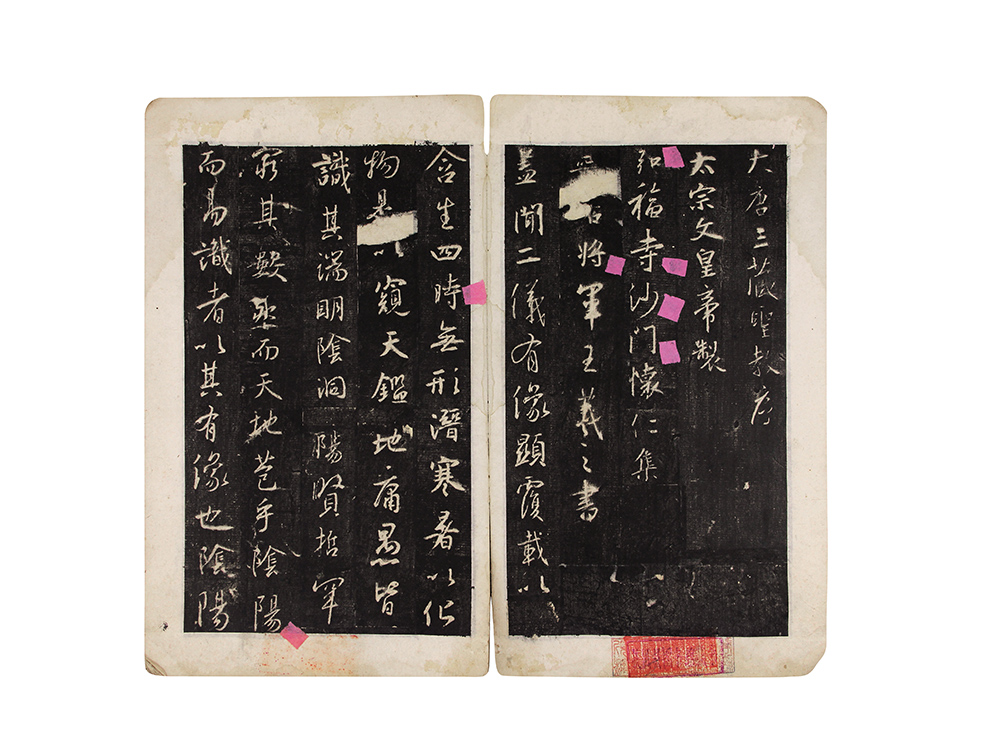 大唐三藏聖教序
太宗文皇帝製
弘福寺沙門懷仁集
右將軍王羲之書
蓋聞二儀有像顯覆載以
含生四時無形潛寒暑以化
物是以窺天鑑地庸愚皆
識其端明陰洞陽賢哲罕
窮其數然而天地苞乎陰陽
而易識者以其有像也陰陽